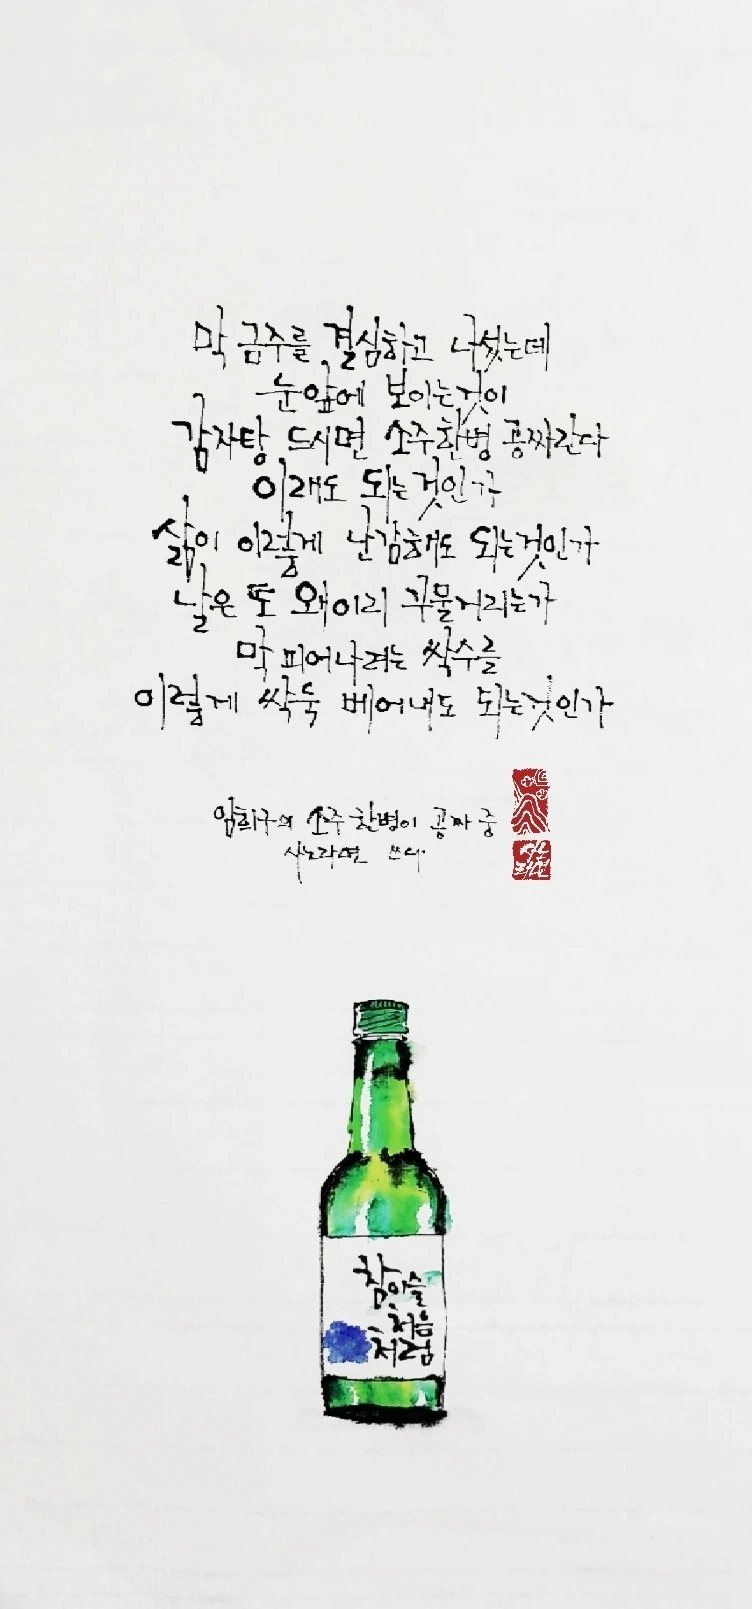 막 금주를 결심하고 나섰는데
눈앞에 보이는것이
감자탕 드시면 소주한병 공짜란다
이래도 되는것인가
삶이 이렇게 난감해도 되는것인가
날은 또 왜이리 꾸물거리는가
막 피어나려는 싹수를
이렇게 싹둑 베어내도 되는것인가
임희구의 소주 한병이 공짜 중
사노라면 쓰다
참이슬
처음
처럼